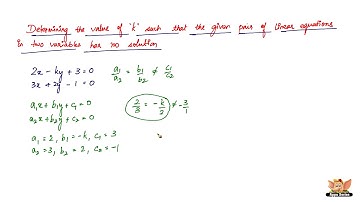 Determining the value of "k" such that the given pair of linear equations
in two variables has no solution
2x - ky + 3 = 0
3x + 2y - 1 = 0
a₁/a₂ = b₁/b₂ ≠ c₁/c₂
a₁x + b₁y + c₁ = 0
a₂x + b₂y + c₂ = 0
2/3 = -k/2 ≠ -3/1
a₁ = 2, b₁ = -k, c₁ = 3
a₂ = 3, b₂ = 2, c₂ = -1